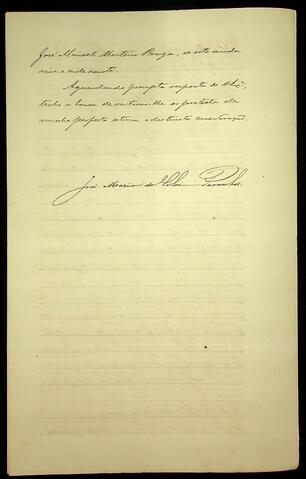 José Manoel Monteiro Braga, se este ainda
vive e onde existe.
Aguardando prompta resposta de
tenho a honra de os protestos de
minha perfeita estima e distincta consideração
José Maria da Silva Paranhos.